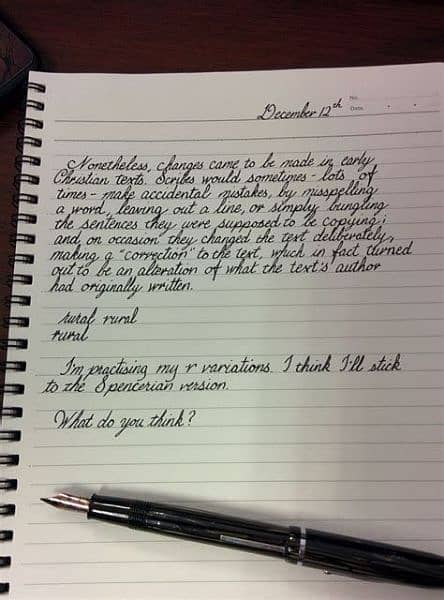 No.
Date
December 12th
Nonetheless, changes came to be made in early
Christian texts. Scribes would sometimes - lots of
times - make accidental mistakes, by misspelling
a word, leaving out a line, or simply bungling
the sentences they were supposed to be copying;
and on occasion they changed the text deliberately,
making a "correction" to the text, which in fact turned
out to be an alteration of what the text's author
had originally written.
rural rural
rural
I'm practising my r variations. I think I'll stick
to the Spencerian version.
What do you think?